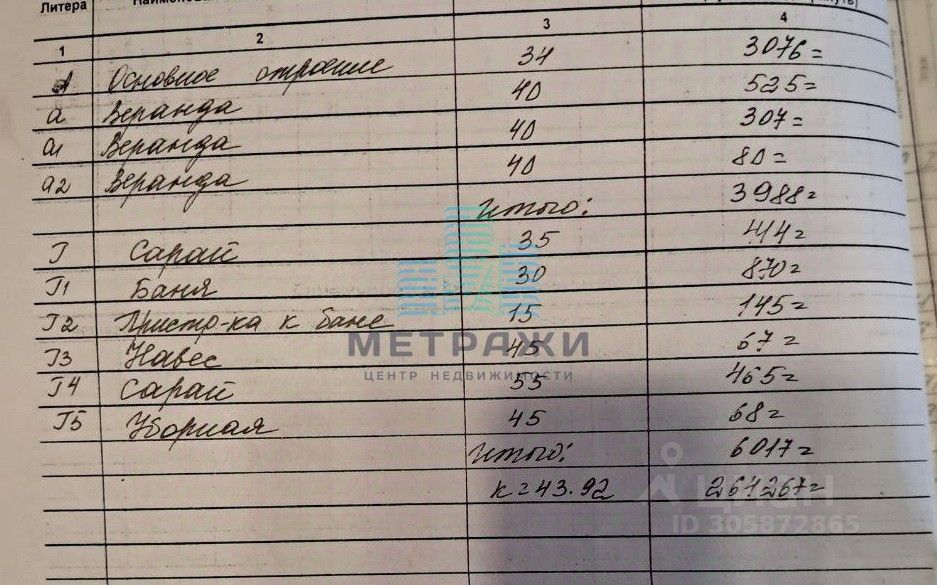 Литера
1 2 3 4
А Основное строение 34 3076=
а Веранда 40 525=
а1 Веранда 40 307=
а2 Веранда 40 80=
Итого: 3988=
Г Сарай 35 414=
Г1 Баня 30 870=
Г2 Пристр-ка к бане 15 145=
Г3 Навес 45 67=
Г4 Сарай 55 465=
Г5 Уборная 45 68=
Итого: 6017=
к=43.92 264267=
МЕТРАЖИ
ЦЕНТР НЕДВИЖИМОСТИ
циан
ID 305872865